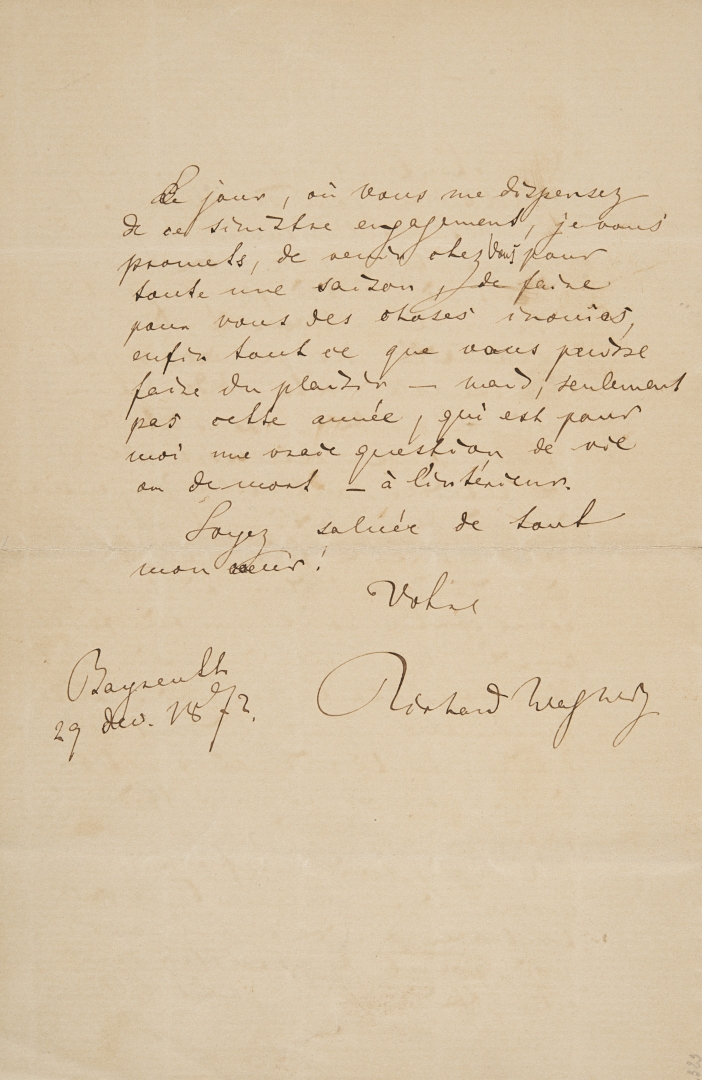 Le jour, où vous me dispensez
de ce sinistre engagement, je vous
promets, de venir chez vous pour
toute une saison, de faire
pour vous des choses inouies,
enfin tout ce que vous puisse
faire du plaisir — mais, seulement
pas cette année, qui est pour
moi une vraie question de vie
ou de mort — à l'intérieur.
Soyez saluée de tout
mon cœur!
Votre
Bayreuth
29 dec. 1872.
Richard Wagner
323